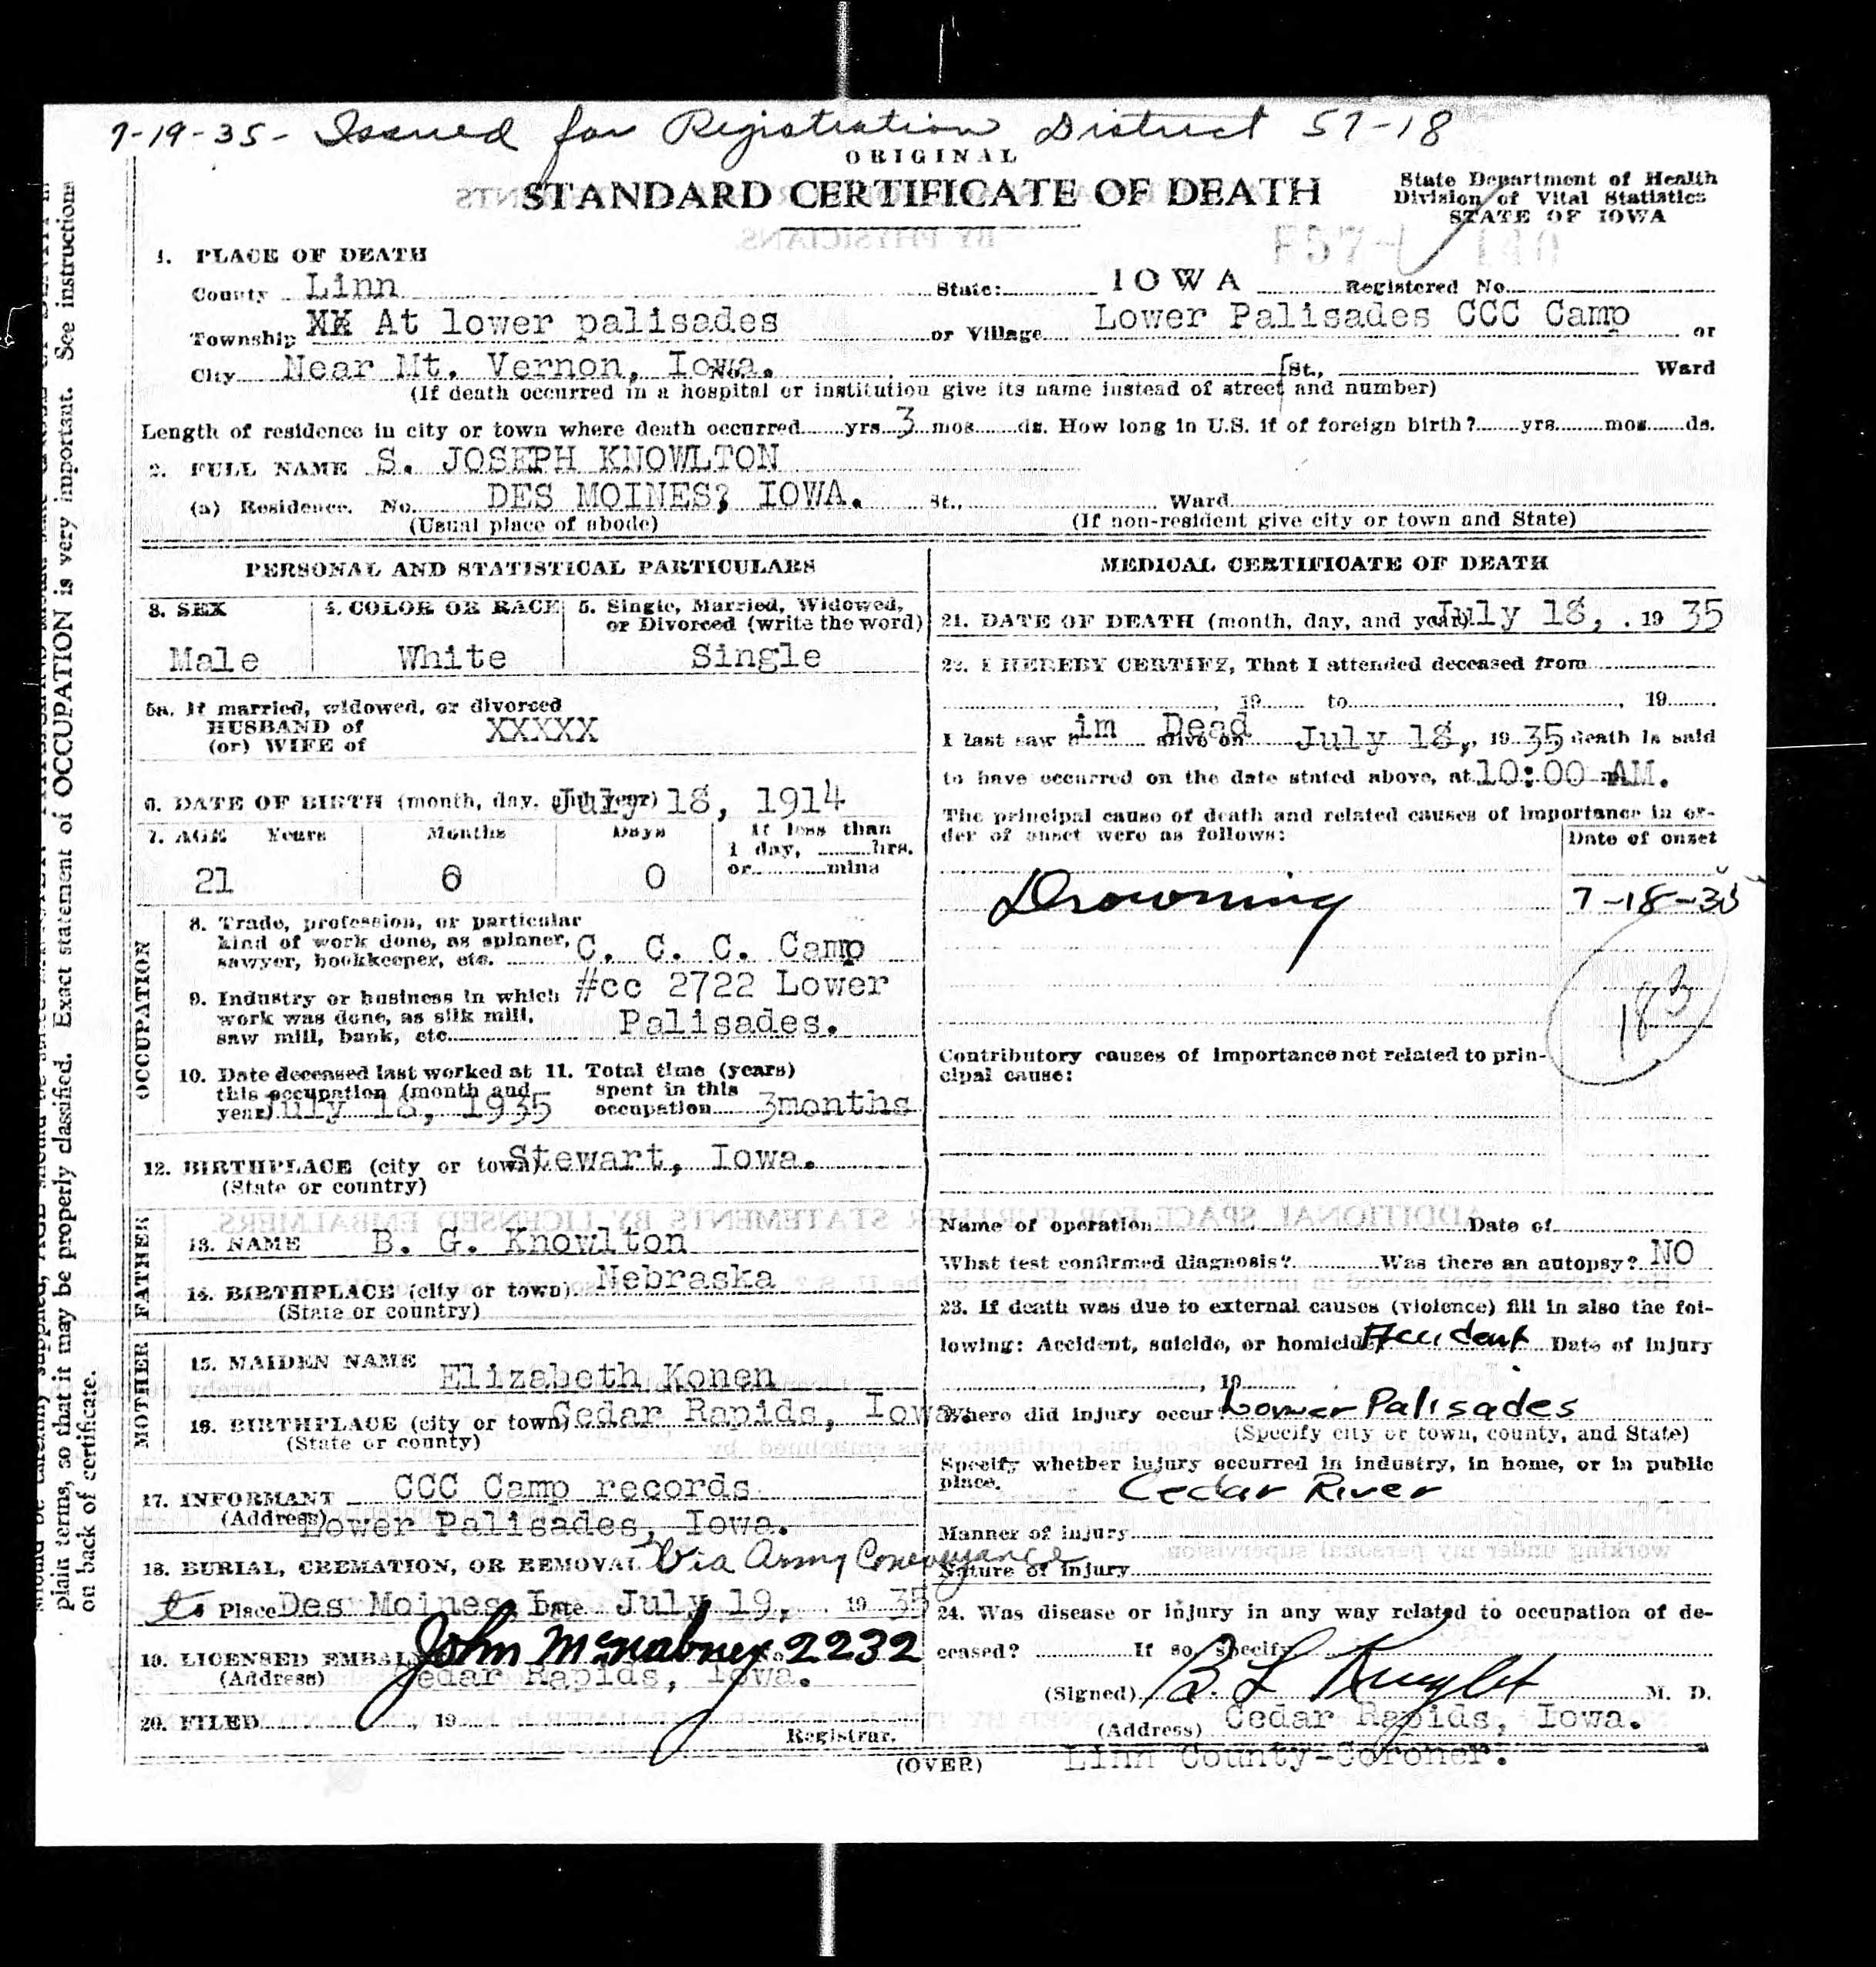 7-19-35- Issued for Registration District 57-18
ORIGINAL
STANDARD CERTIFICATE OF DEATH
State Department of Health
Division of Vital Statistics
STATE OF IOWA
F57-
1. PLACE OF DEATH
County Linn State: IOWA Registered No.
Township XX At lower palisades or Village Lower Palisades CCC Camp or
City Near Mt. Vernon, Iowa. St., Ward
(If death occurred in a hospital or institution give its name instead of street and number)
Length of residence in city or town where death occurred yrs 3 mos ds. How long in U.S. if of foreign birth? yrs. mos ds.
2. FULL NAME S. JOSEPH KNOWLTON
(a) Residence. No. DES MOINES, IOWA. St., Ward
(Usual place of abode) (If non-resident give city or town and State)
PERSONAL AND STATISTICAL PARTICULARS
3. SEX 4. COLOR OR RACE 5. Single, Married, Widowed,
or Divorced (write the word)
Male White Single
5a. If married, widowed, or divorced
HUSBAND of
(or) WIFE of XXXXX
6. DATE OF BIRTH (month, day, and year) July 18, 1914
7. AGE Years Months Days If less than
1 day, hrs.
or mins
21 0 0
OCCUPATION
8. Trade, profession, or particular
kind of work done, as spinner,
sawyer, bookkeeper, etc. C. C. C. Camp
9. Industry or business in which #cc 2722 Lower
work was done, as silk mill, Palisades.
saw mill, bank, etc.
10. Date deceased last worked at 11. Total time (years)
this occupation (month and spent in this
year) July 18, 1935 occupation 3months
12. BIRTHPLACE (city or town) Stewart, Iowa.
(State or country)
FATHER
13. NAME B. G. Knowlton
14. BIRTHPLACE (city or town) Nebraska
(State or country)
MOTHER
15. MAIDEN NAME Elizabeth Konen
16. BIRTHPLACE (city or town) Cedar Rapids, Iowa.
(State or county)
17. INFORMANT CCC Camp records
(Address) Lower Palisades, Iowa.
18. BURIAL, CREMATION, OR REMOVAL Via Army Conveyance
to Place Des Moines Ia Date July 19, 1935
19. LICENSED EMBALMER John McNabney No. 2232
(Address) Cedar Rapids, Iowa.
20. FILED , 19
Registrar.
MEDICAL CERTIFICATE OF DEATH
21. DATE OF DEATH (month, day, and year) July 18, . 19 35
22. I HEREBY CERTIFY, That I attended deceased from
, 19 to , 19 .
I last saw him Dead alive on July 18, , 19 35, death is said
to have occurred on the date stated above, at 10:00 AM.
The principal cause of death and related causes of importance in or-
der of onset were as follows: Date of onset
Drowning 7-18-35
183
Contributory causes of importance not related to prin-
cipal cause:
Name of operation Date of
What test confirmed diagnosis? Was there an autopsy? NO
23. If death was due to external causes (violence) fill in also the fol-
lowing: Accident, suicide, or homicide? Accident Date of injury
, 19
Where did injury occur? Lower Palisades
(Specify city or town, county, and State)
Specify whether injury occurred in industry, in home, or in public
place. Cedar River
Manner of injury
Nature of injury
24. Was disease or injury in any way related to occupation of de-
ceased? If so, specify
(Signed) B. L Knight M. D.
(Address) Cedar Rapids, Iowa.
Linn County-Coroner.
(OVER)
plain terms, so that it may be properly classified. Exact statement of OCCUPATION is very important. See instructions
on back of certificate.